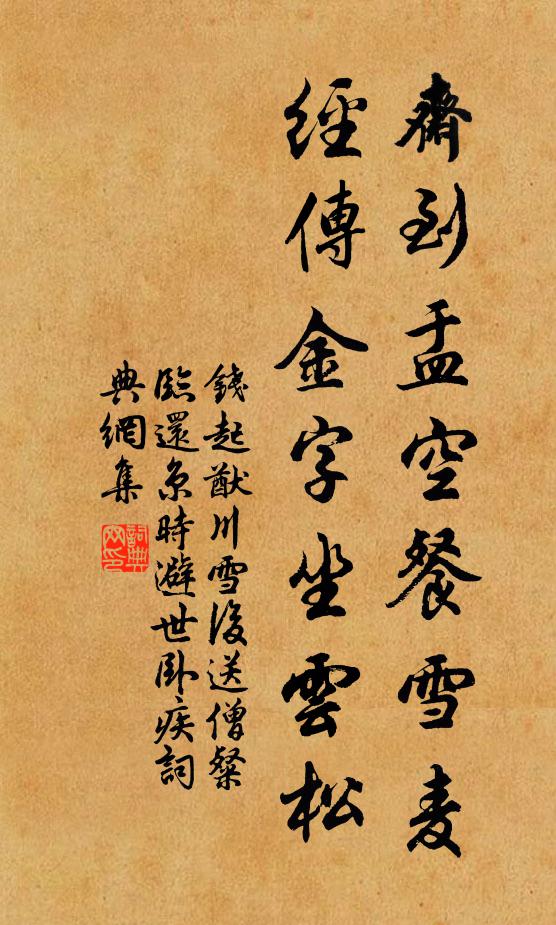 齋到盂空餐雪麦
經傳金字坐雲松
錢起猷川雪後送僧粲
臨還京時避世卧疾詞
典網集
詞典網印